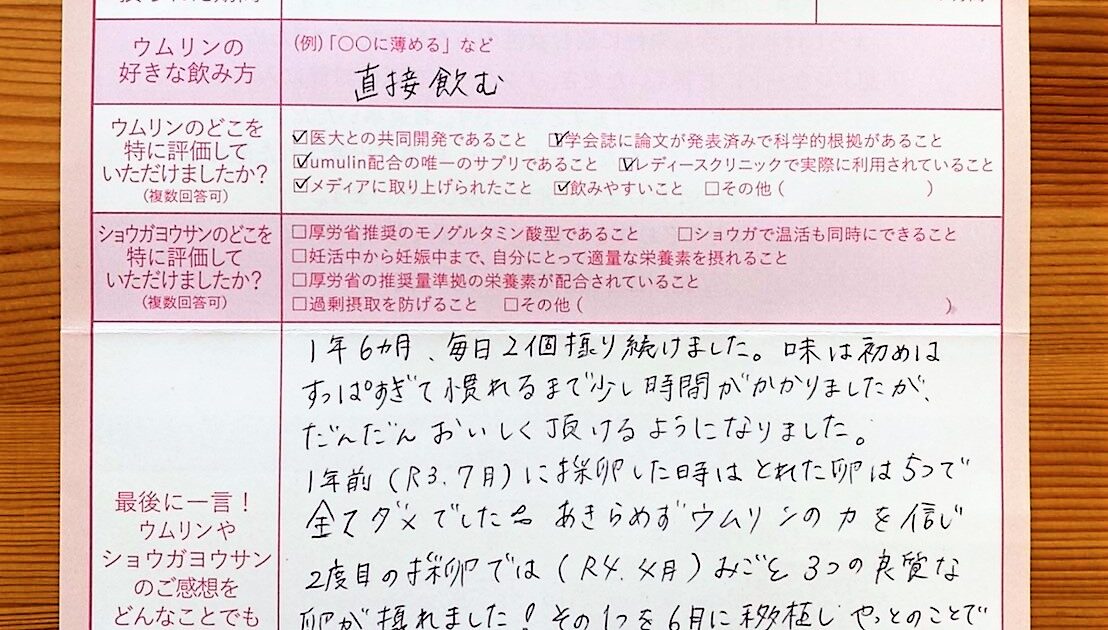 ウムリンの
好きな飲み方
(例)「〇〇に薄める」など
直接飲む
ウムリンのどこを
特に評価して
いただけましたか?
(複数回答可)
☑医大との共同開発であること ☑学会誌に論文が発表済みで科学的根拠があること
☑umulin配合の唯一のサプリであること ☑レディースクリニックで実際に利用されていること
☑メディアに取り上げられたこと ☑飲みやすいこと □その他( )
ショウガヨウサンのどこを
特に評価して
いただけましたか?
(複数回答可)
□厚労省推奨のモノグルタミン酸型であること □ショウガで温活も同時にできること
□妊活中から妊娠中まで、自分にとって適量な栄養素を摂れること
□厚労省の推奨量準拠の栄養素が配合されていること
□過剰摂取を防げること □その他( )
最後に一言!
ウムリンや
ショウガヨウサン
のご感想を
どんなことでも
1年6カ月、毎日2個摂り続けました。味は初めは
すっぱすぎて慣れるまで少し時間がかかりましたが、
だんだんおいしく頂けるようになりました。
1年前(R3.7月)に採卵した時はとれた卵は5つで
全てダメでした。あきらめずウムリンの力を信じ
2度目の採卵では(R4.4月)みごと3つの良質な
卵が摂れました!その1つを6月に移植しやっとのことで